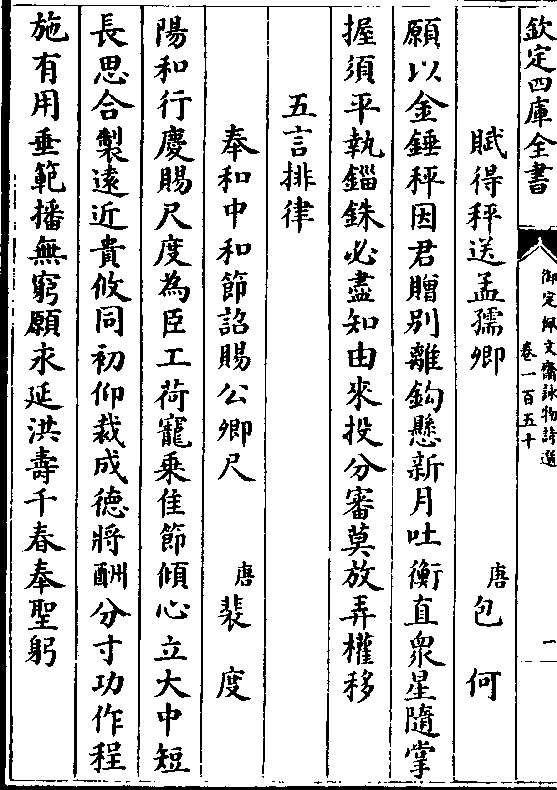 欽定四庫全書
御定佩文齋詠物詩選
卷一百五十
一
賦得秤送孟孺卿
唐包何
願以金錘秤因君贈別離鈎懸新月吐衡直衆星隨掌
握須平執錙銖必盡知由來投分審莫放弄權移
五言排律
奉和中和節詔賜公卿尺
唐裴度
陽和行慶賜尺度為臣工荷寵乗佳節傾心立大中短
長思合製遠近貴攸同初仰裁成德將酬分寸功作程
施有用垂範播無窮願求延洪壽千春奉聖躬